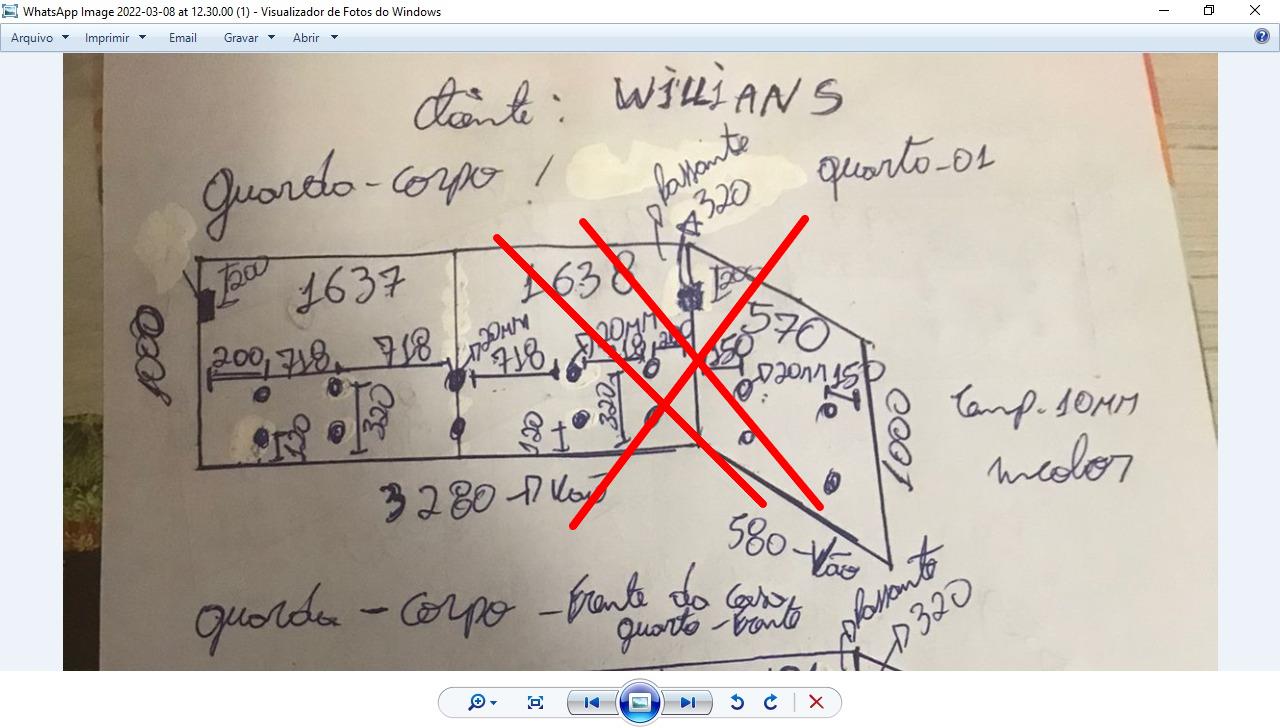 WhatsApp Image 2022-03-08 at 12.30.00 (1) - Visualizador de Fotos do Windows
Arquivo Imprimir Email Gravar Abrir
WILLIANS
Guarda-corpo / quarto-01
Passante
320
200 1637 1638 200
570
1000
200 718 718 20MM 718 20MM 200 150
20MM 150
120 320 120 320
1000
Temp. 10MM
incolor
3280 Vão
580 Vão
guarda - corpo - frente da casa,
quarto-frente
Passante
320